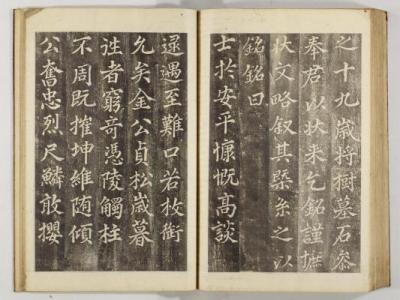 之十九歲將樹墓石叅
奉君以状来乞銘謹摭
状文略叙其槩系之以
銘銘曰
士於安平慷慨高談
逮遇至難口若枚銜
允矣金公貞松歲暮
徃者窮奇憑陵觸柱
不周既摧坤維随傾
公奮忠烈尺鱗敢攖